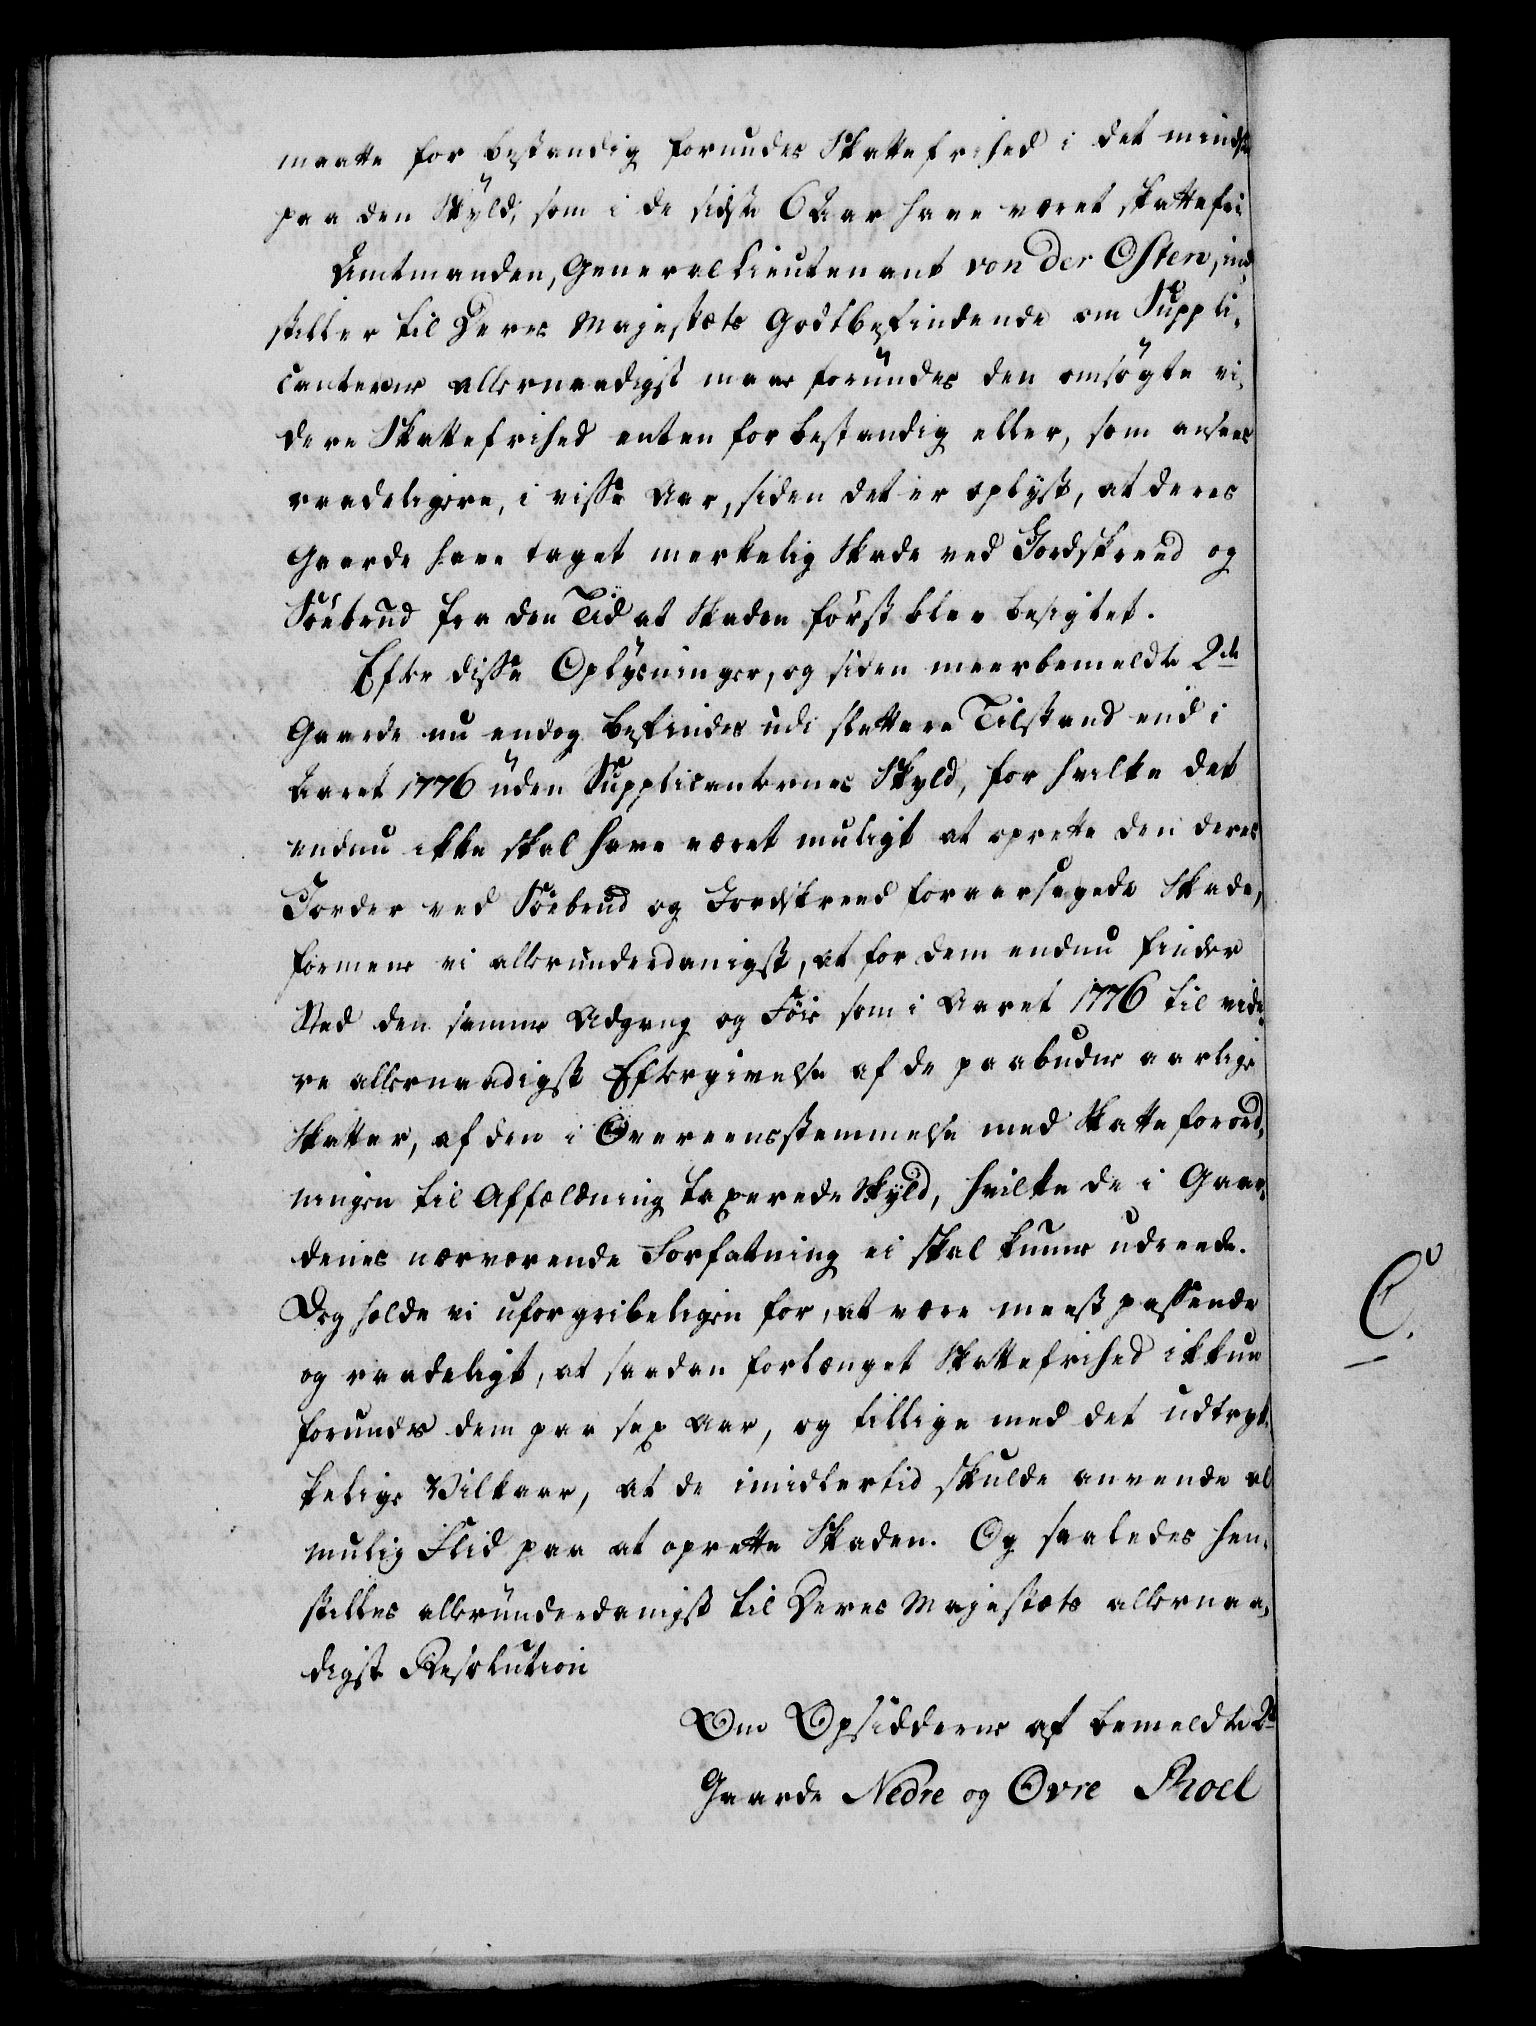 maatte for bestandig forundes Skattefrihed i det mindste
paa den Skyld, som i de sidste 6 Aar have været skattefri
Amtmanden, General Lieutenant von der Osten, ind¬
stiller til Deres Majestæts Godtbefindende om Suppli¬
canterne allernaadigst maae forundes den omsøgte vi¬
dere Skattefrihed enten for bestandig eller, som ansees
raadeligere, i visse Aar, siden det er oplyst, at deres
Gaarde have taget merkelig Skade ved Jordskreed og
Söebrud fra den Tid at Skaden först blev besigtet.
Efter disse Oplysninger, og siden meerbemeldte 2de
Gaarde nu endog befindes udi slettere Tilstand end i
Aaret 1776 uden Supplicanternes Skyld, for hvilke det
endnu ikke skal have været muligt at oprette den deres
Jorder ved Söebrud og Jordskreed foraarsagede Skade,
formene vi allerunderdanigst, at for dem endnu finder
Sted den samme Adgang og Föie som i Aaret 1776 til vide¬
re allernaadigst Eftergivelse af de paabudne aarlige
Skatter, af den i Overeensstemmelse med Skatteforord¬
ningen til Affældning taxerede Skyld, hvilke de i Gaar¬
denes nærværende Forfatning ei skal kunne udreede.
Dog holde vi uforgribeligen for, at være meest passende
og raadeligt, at saadan forlænget Skattefrihed ikkun
forundes dem paa sex Aar, og tillige med det udtryk¬
kelige Vilkaar, at de imidlertid skulde anvende al
mulig Flid paa at oprette Skaden. Og saaledes hen¬
stilles allerunderdanigst til Deres Majestæts allernaa¬
digste Resolution
Om Opsidderne af bemeldte 2de
Gaarde Nedre og Øvre Roel
C.